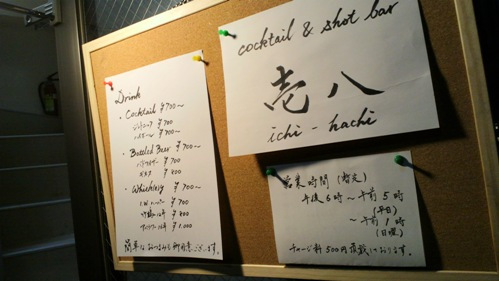 cocktail & shot bar
壱八
ichi - hachi
Drink
・Cocktail ¥700〜
¥700
¥700〜
・Bottled Beer ¥700〜
バドワイザー ¥700
¥800
・Whiskey ¥700〜
I.W.ハーパー ¥700
¥800
¥1,000
簡単なおつまみも御用意ございます。
営業時間(暫定)
午後6時〜午前5時
(平日)
〜午前1時
(日曜)
チャージ料500円頂戴しております。